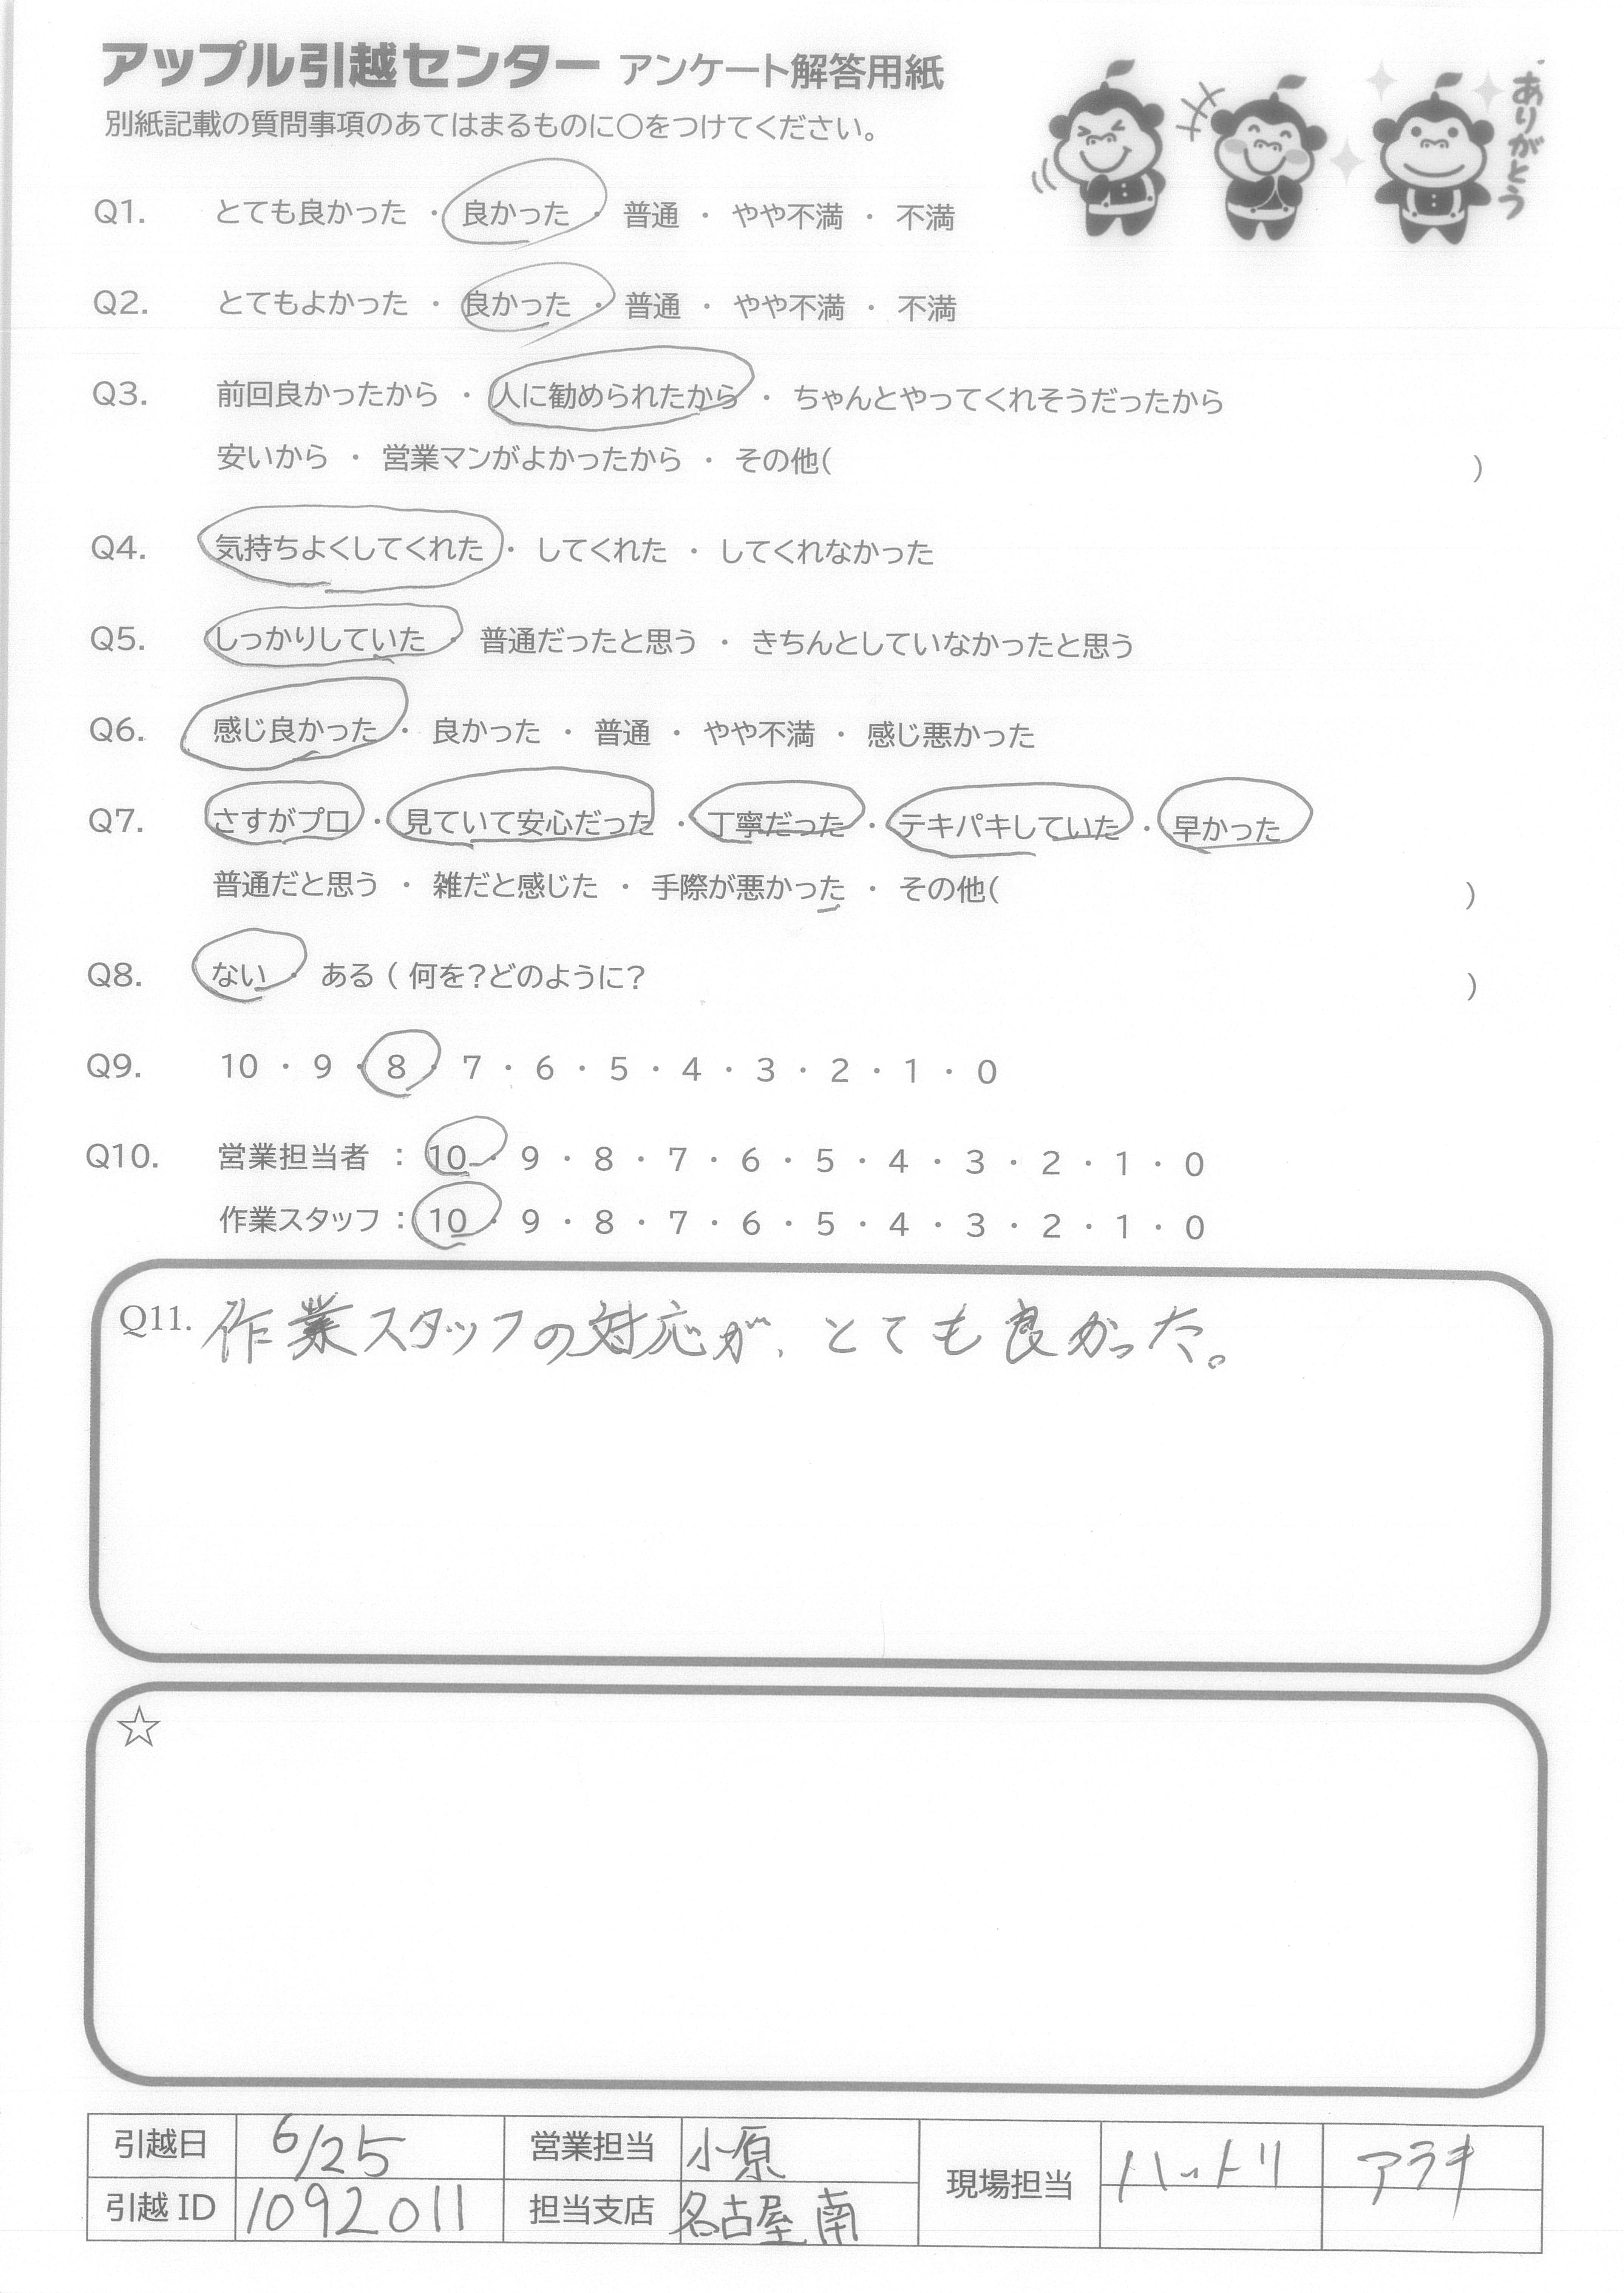 アップル引越センター アンケート解答用紙
ありがとう
別紙記載の質問事項のあてはまるものに○をつけてください。
Q1. とても良かった ・ 良かった ・ 普通 ・ やや不満 ・ 不満
Q2. とてもよかった ・ 良かった ・ 普通 ・ やや不満 ・ 不満
Q3. 前回良かったから ・ 人に勧められたから ・ ちゃんとやってくれそうだったから
安いから ・ 営業マンがよかったから ・ その他( )
Q4. 気持ちよくしてくれた ・ してくれた ・ してくれなかった
Q5. しっかりしていた ・ 普通だったと思う ・ きちんとしていなかったと思う
Q6. 感じ良かった ・ 良かった ・ 普通 ・ やや不満 ・ 感じ悪かった
Q7. さすがプロ ・ 見ていて安心だった ・ 丁寧だった ・ テキパキしていた ・ 早かった
普通だと思う ・ 雑だと感じた ・ 手際が悪かった ・ その他( )
Q8. ない ・ ある ( 何を?どのように? )
Q9. 10 ・ 9 ・ 8 ・ 7 ・ 6 ・ 5 ・ 4 ・ 3 ・ 2 ・ 1 ・ 0
Q10. 営業担当者 : 10 ・ 9 ・ 8 ・ 7 ・ 6 ・ 5 ・ 4 ・ 3 ・ 2 ・ 1 ・ 0
作業スタッフ : 10 ・ 9 ・ 8 ・ 7 ・ 6 ・ 5 ・ 4 ・ 3 ・ 2 ・ 1 ・ 0
Q11. 作業スタッフの対応が、とても良かった。
☆
引越日 6/25 営業担当 小原 現場担当 ハットリ アラキ
引越ID 1092011 担当支店 名古屋南